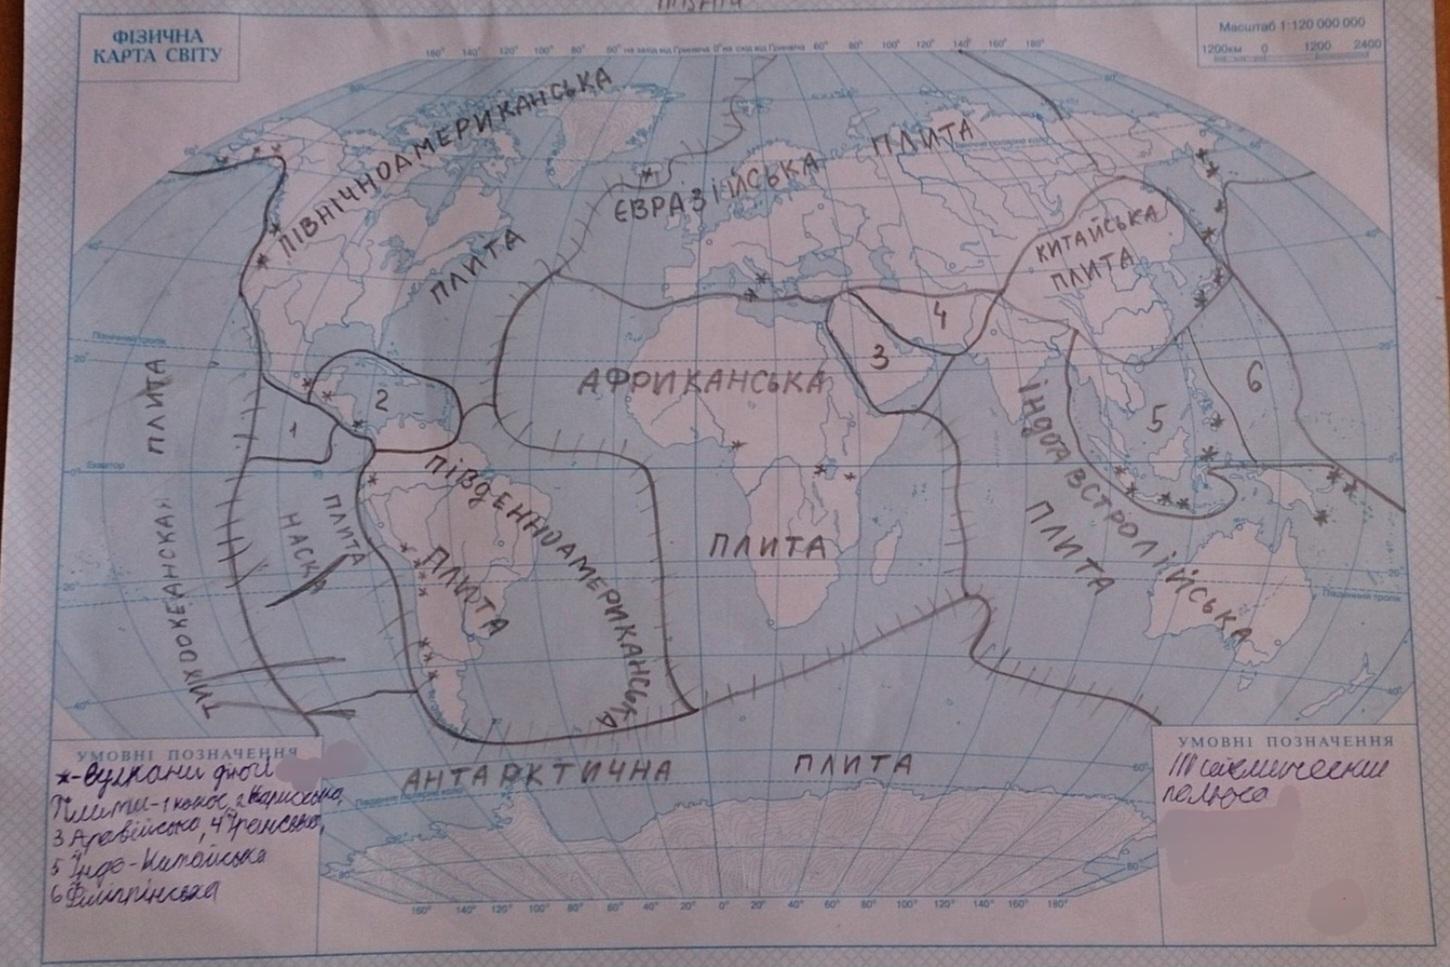 ФІЗИЧНА
КАРТА СВІТУ
Масштаб 1:120 000 000
1200км 0 1200 2400
160° 140° 120° 100° 80° 60° на захід від Гринвіча 0° на схід від Гринвіча 60° 80° 100° 120° 140° 160° 180°
ПІВНІЧНОАМЕРИКАНСЬКА
ПЛИТА
ЄВРАЗІЙСЬКА
ПЛИТА
КИТАЙСЬКА
ПЛИТА
Північний тропік
4
3
6
2
АФРИКАНСЬКА
ПЛИТА
5
1
ПЛИТА
Екватор
ПІВДЕННОАМЕРИКАНСЬКА
ПЛИТА
ПЛИТА
НАСКА
ІНДОАВСТРОЛІЙСЬКА
ПЛИТА
Південний тропік
ТИХООКЕАНСКАЯ
АНТАРКТИЧНА
ПЛИТА
УМОВНІ ПОЗНАЧЕННЯ
*-Вулкани
Плити-1 кокос, 2 Карибська,
3 Аравійська, 4 Іранська,
5 Індо-Китайська
6 Філіппінська
УМОВНІ ПОЗНАЧЕННЯ
сейсмические
пояса
160° 140° 120° 100° 80° 60° 40° 20° 0° 20° 40° 60° 80° 100° 120° 140° 160° 180°